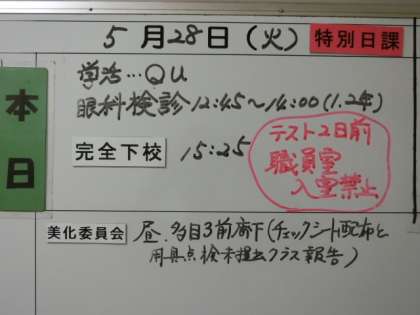 5月28日(火) 特別日課
本日
学活…QU
眼科検診 12:45~14:00(1.2年)
完全下校 15:25
テスト2日前
職員室
入室禁止
美化委員会 昼、多目3前廊下(チェックシート配布と
用具点検未提出クラス報告)